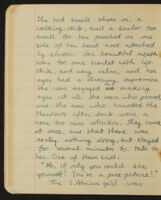 She had small shoes on, a
walking stick, and a bowler too
small for her perched on one
side of her head and attached
by elastic. Her beautiful mouth
was for once scarlet with lip-
stick and very calm, and her
eyes had a dreamy expression.
She was engaged making
eyes at all the men who passed
and the men who haunted the
Meadows after dark were a
none too nice collection. They came
at once, saw that there was
really nothing doing, but stayed
for several minutes to talk to
her. One of them said:
"Ah, if only you could see
yourself! You're a pure picture!"
The S. African girl was